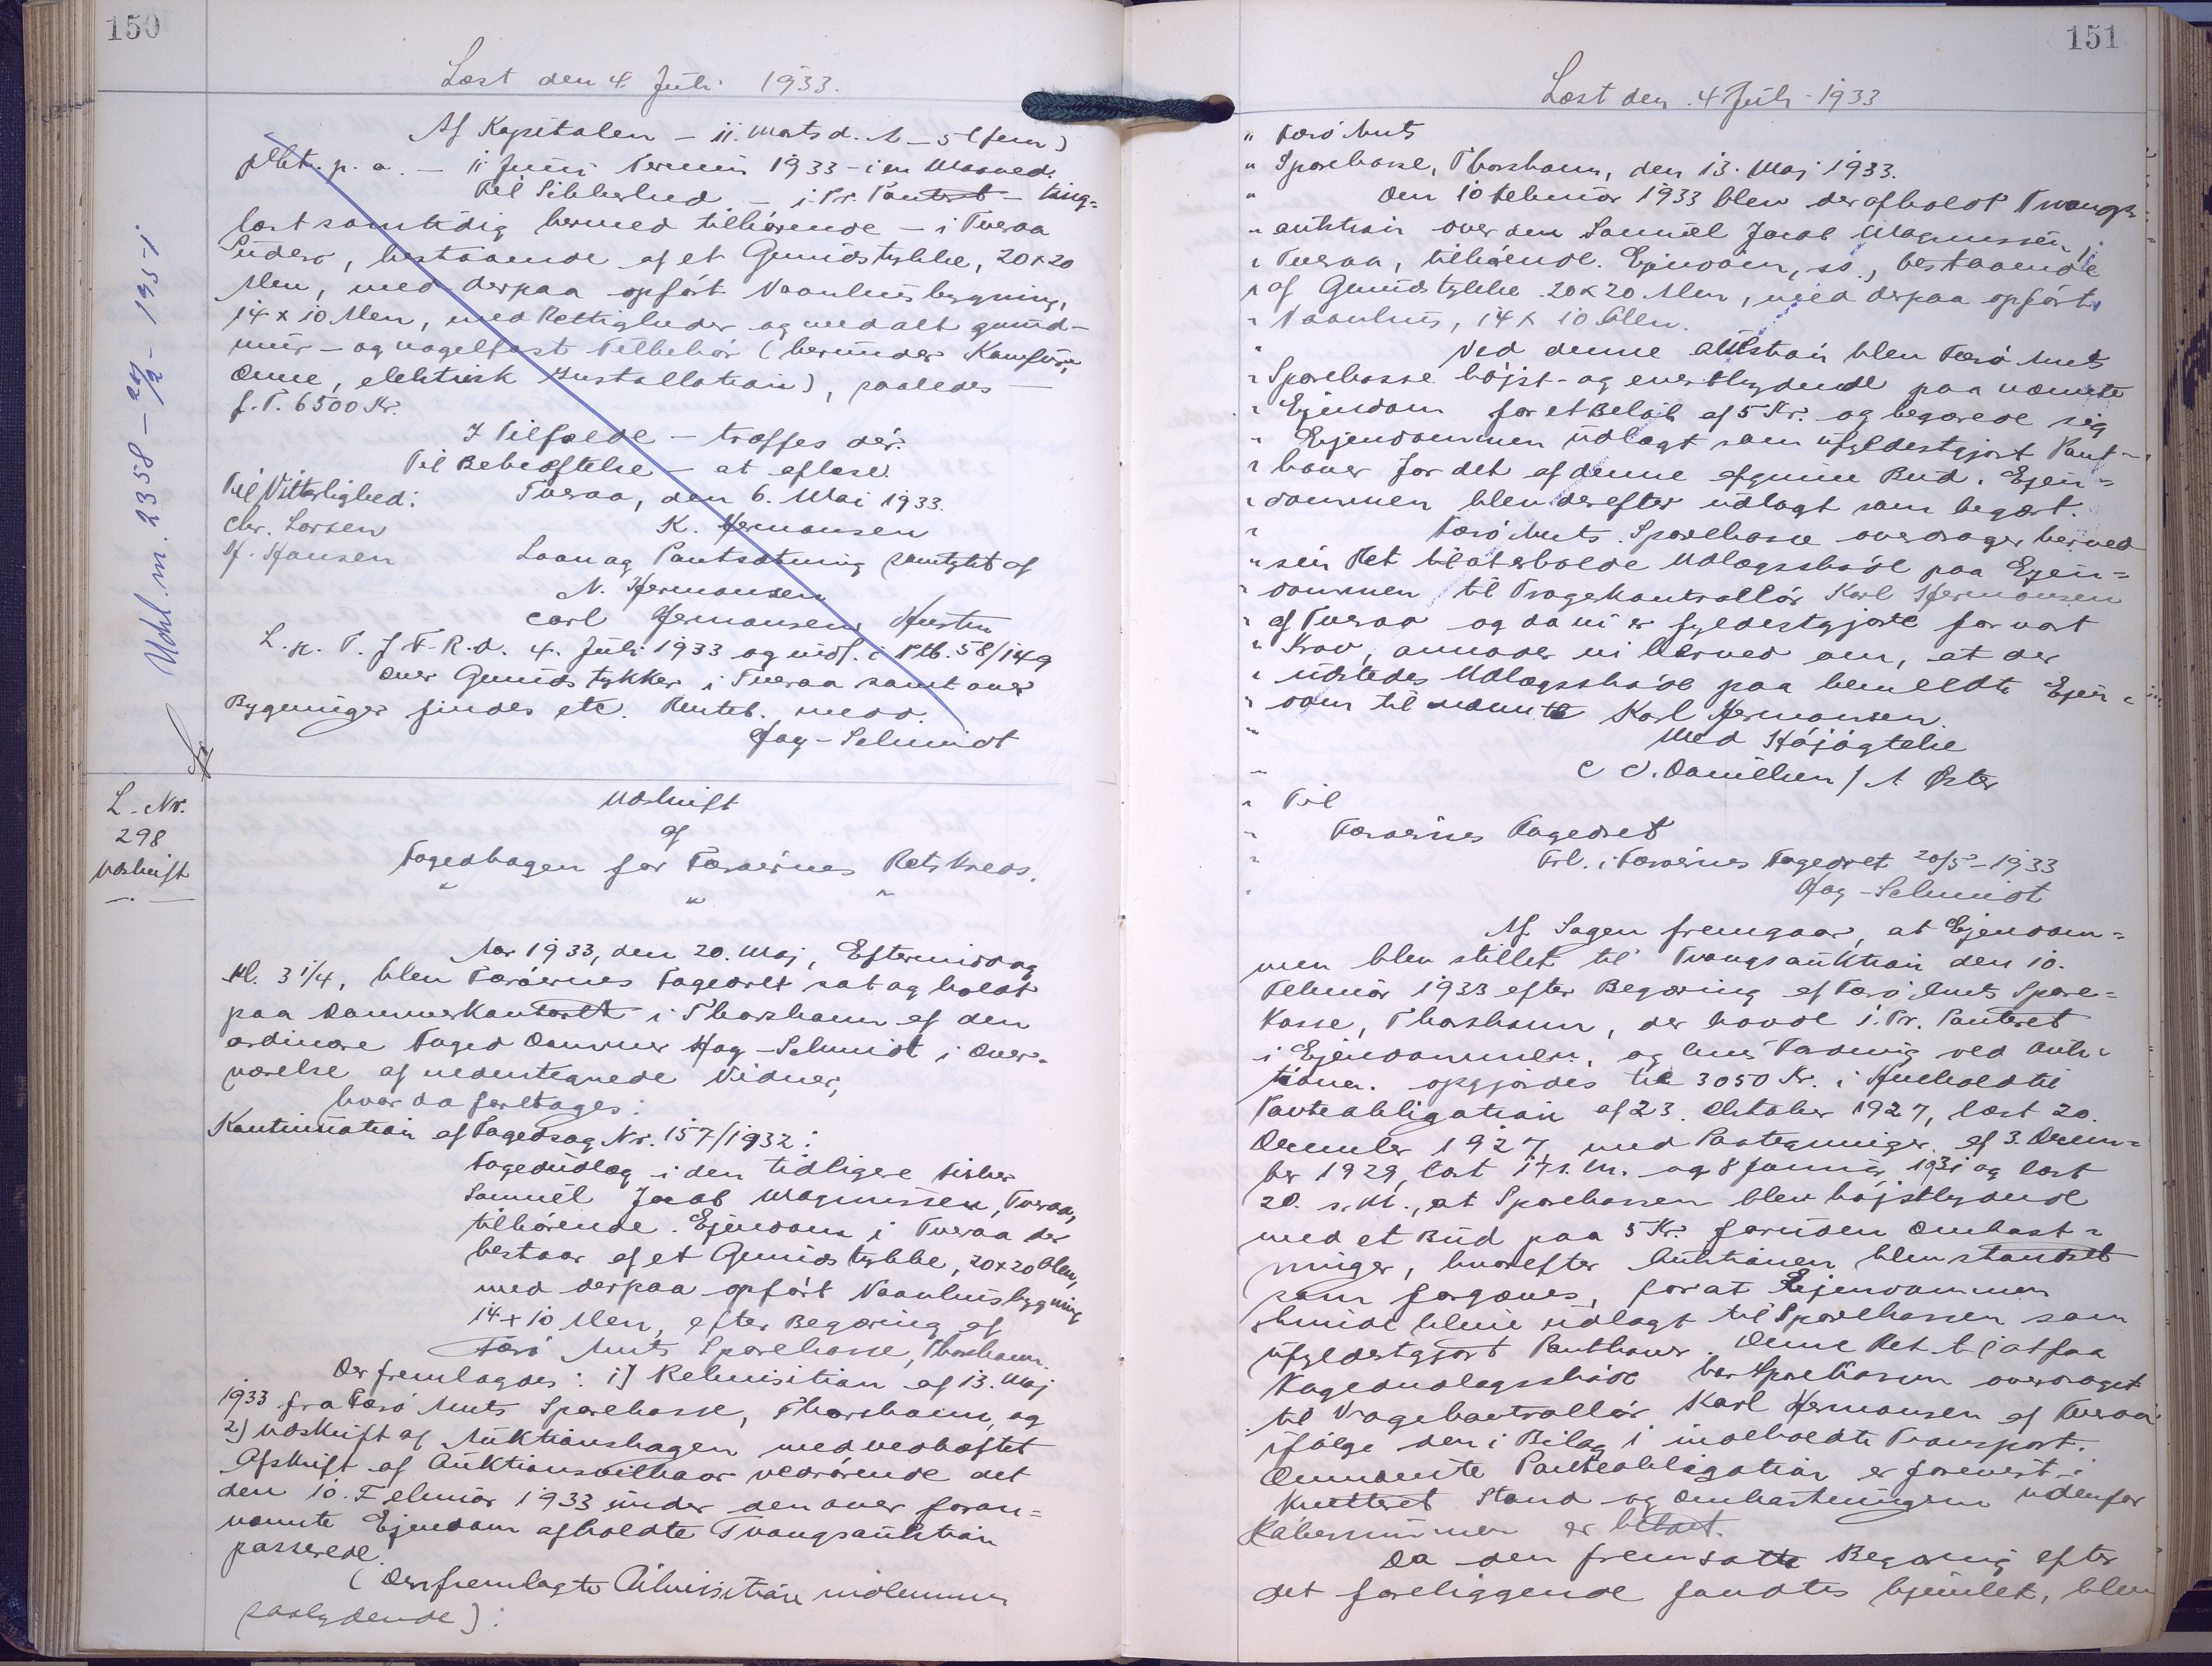 150
Læst den 4. Juli 1933.
Af Kapitalen - 11. Marts d. A - 5 (fem)
pCt. p. a. - 11 Juni Termin 1933 - i en Maaned.
Til Sikkerhed - i Pr. Panteret - ting-
læst samtidig hermed tilhørende - i Tveraa
Suderø, bestaaende af et Grundstykke, 20 x 20
Alen, med derpaa opført Vaanhusbygning,
14 x 10 Alen, med Rettigheder og med alt grund-
mur- og nagelfast Tilbehør (herunder Komfur,
Ovne, elektrisk Installation), saaledes -
f. T. 6500 Kr.
I Tilfælde - træffes dér.
Til Bekræftelse - at aflæse.
Til Vitterlighed: Tveraa, den 6. Mai 1933.
Chr. Larsen K. Hermansen
H. Hansen Laan og Pantsætning samtykt af
N. Hermansen
Carl Hermansen Hustru
L. p. T. f. F. R. d. 4. Juli 1933 og indf. i Ptb. 58/149
Over Grundstykker i Tveraa samt over
Bygninger findes etc. Renteb. medd.
Hag-Schmidt
Udsl. m. 2358 - 27/2 - 1951
L. Nr.
298
Udskrift
Udskrift
af
Fogedbogen for Færøernes Retskreds.
" " "
Aar 1933, den 20. Maj, Eftermiddag
Kl. 3 1/4, blev Færøernes Fogedret sat og holdt
paa Dommerkontoret i Thorshavn af den
ordinære Foged Dommer Hag-Schmidt i Over-
værelse af undertegnede Vidner,
hvor da foretages:
Kontinuation af Fogedsag Nr. 157/1932:
Fogedudlæg i den tidligere Fisker
Samuel Jacob Magnussen, Tveraa,
tilhørende. Ejendom i Tveraa der
bestaar af et Grundstykke, 20 x 20 Alen,
med derpaa opført Vaanhusbygning
14 x 10 Alen, efter Begæring af
Færø Amts Sparekasse, Thorshavn.
Der fremlagdes: 1) Rekvisition af 13. Maj
1933 fra Færø Amts Sparekasse, Thorshavn, og
2) Udskrift af Auktionsbogen med vedhæftet
Afskrift af Auktionsvilkaar vedrørende det
den 10. Februar 1933 under den over foran-
nævnte Ejendom afholdte Tvangsauktion
passerede.
(Den fremlagte Rekvisition indkommer
saalydende):
151
Læst den 4 Juli - 1933
" Færø Amts
" Sparekasse, Thorshavn, den 13. Maj 1933.
" Den 10 Februar 1933 blev der afholdt Tvangs-
" auktion over den Samuel Jacob Magnussen,
" Tveraa, tilhørende. Ejendom, ss., bestaaende
" af Grundstykke 20 x 20 Alen, med derpaa opført
" Vaanhus, 14 x 10 Alen.
" Ved denne Auktion blev Færø Amts
" Sparekasse højst- og enestbydende paa nævnte
" Ejendom for et Beløb af 5 Kr. og begærede sig
" Ejendommen udlagt som ufyldestgjort Pant-
" haver for det af denne afgivne Bud. Ejen-
" dommen blev derefter udlagt som begært.
" Færø Amts Sparekasse overdrager herved
" sin Ret til at erholde Udlægsskøde paa Ejen-
" dommen til Vragekontrollør Karl Hermansen
" af Tveraa og da vi er fyldestgjorte for vort
" Krav, anmoder vi herved om, at der
" udstedes Udlægsskøde paa bemeldte Ejen-
" dom til nævnte Karl Hermansen.
" Med Højagtelse
" C. C. Danielsen / A Øster
" Til
" Færøernes Fogedret
" Frl. i Færøernes Fogedret 20/5 - 1933
" Hag-Schmidt
Af Sagen fremgaar, at Ejendom-
men blev stillet til Tvangsauktion den 10.
Februar 1933 efter Begæring af Færø Amts Spare-
kasse, Thorshavn, der havde 1. Pr. Panteret
i Ejendommen, og hvis Fordring ved Auk-
tionen opgjordes til 3050 Kr. i Henhold til
Panteobligation af 23. Oktober 1927, læst 20.
December 1927 med Paategninger af 3. Decem-
ber 1929, læst 17 s. M. og 8 Januar 1931 og læst
20. s. M., at Sparekassen blev højstbydende
med et Bud paa 5 Kr. foruden Omkost-
ninger, hvorefter Auktionen blev standset
som forgæves, for at Ejendommen
skulde blive udlagt til Sparekassen som
ufyldestgjort Panthaver. Denne Ret til at faa
Fogedudlægsskøde har Sparekassen overdraget
til Vragekontrollør Karl Hermansen af Tveraa
ifølge den i Bilag 1 indeholdte Transport.
Omnævnte Panteobligation er forevist i
kvitteret Stand og Omkostningerne udenfor
Købesummen er betalt.
Da den fremsatte Begæring efter
det foreliggende fandtes hjemlet, blev